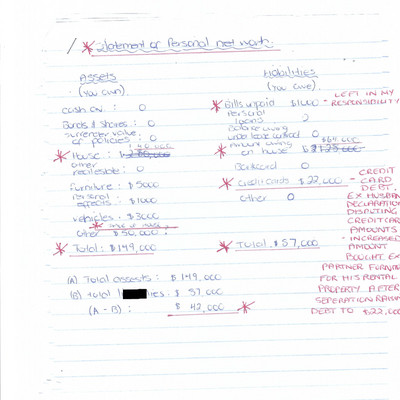 * Statement of Personal net worth.
ASSETS
(you own)
cash on : 0
Bonds & shares : 0
surrender value of policies : 0
* House :
other real estate : 0
Furniture : $5000
Personal effects : $1000
vehicles : $3000
other $50,000.
* Total : $149,000
LIABILITIES
(you owe)
* Bills unpaid $1000 - LEFT IN MY RESPONSIBILITY
Personal loans 0
Balance owing under lease contract 0
* Amount owing on house
Bankcard 0
* creditcards $22,000 - CREDIT CARD DEBT.
other 0
EX HUSBAND
DECLARATION
DISPUTING
CREDIT CARD
AMOUNTS
* Total. $57,000 - INCREASED AMOUNT
BOUGHT EX
PARTNER
FOR HIS RENTAL
PROPERTY AFTER
SEPERATION
DEBT TO $22,000
(A) Total assests : $149,000
(B) total : $57,000
(A - B) : $42,000 *